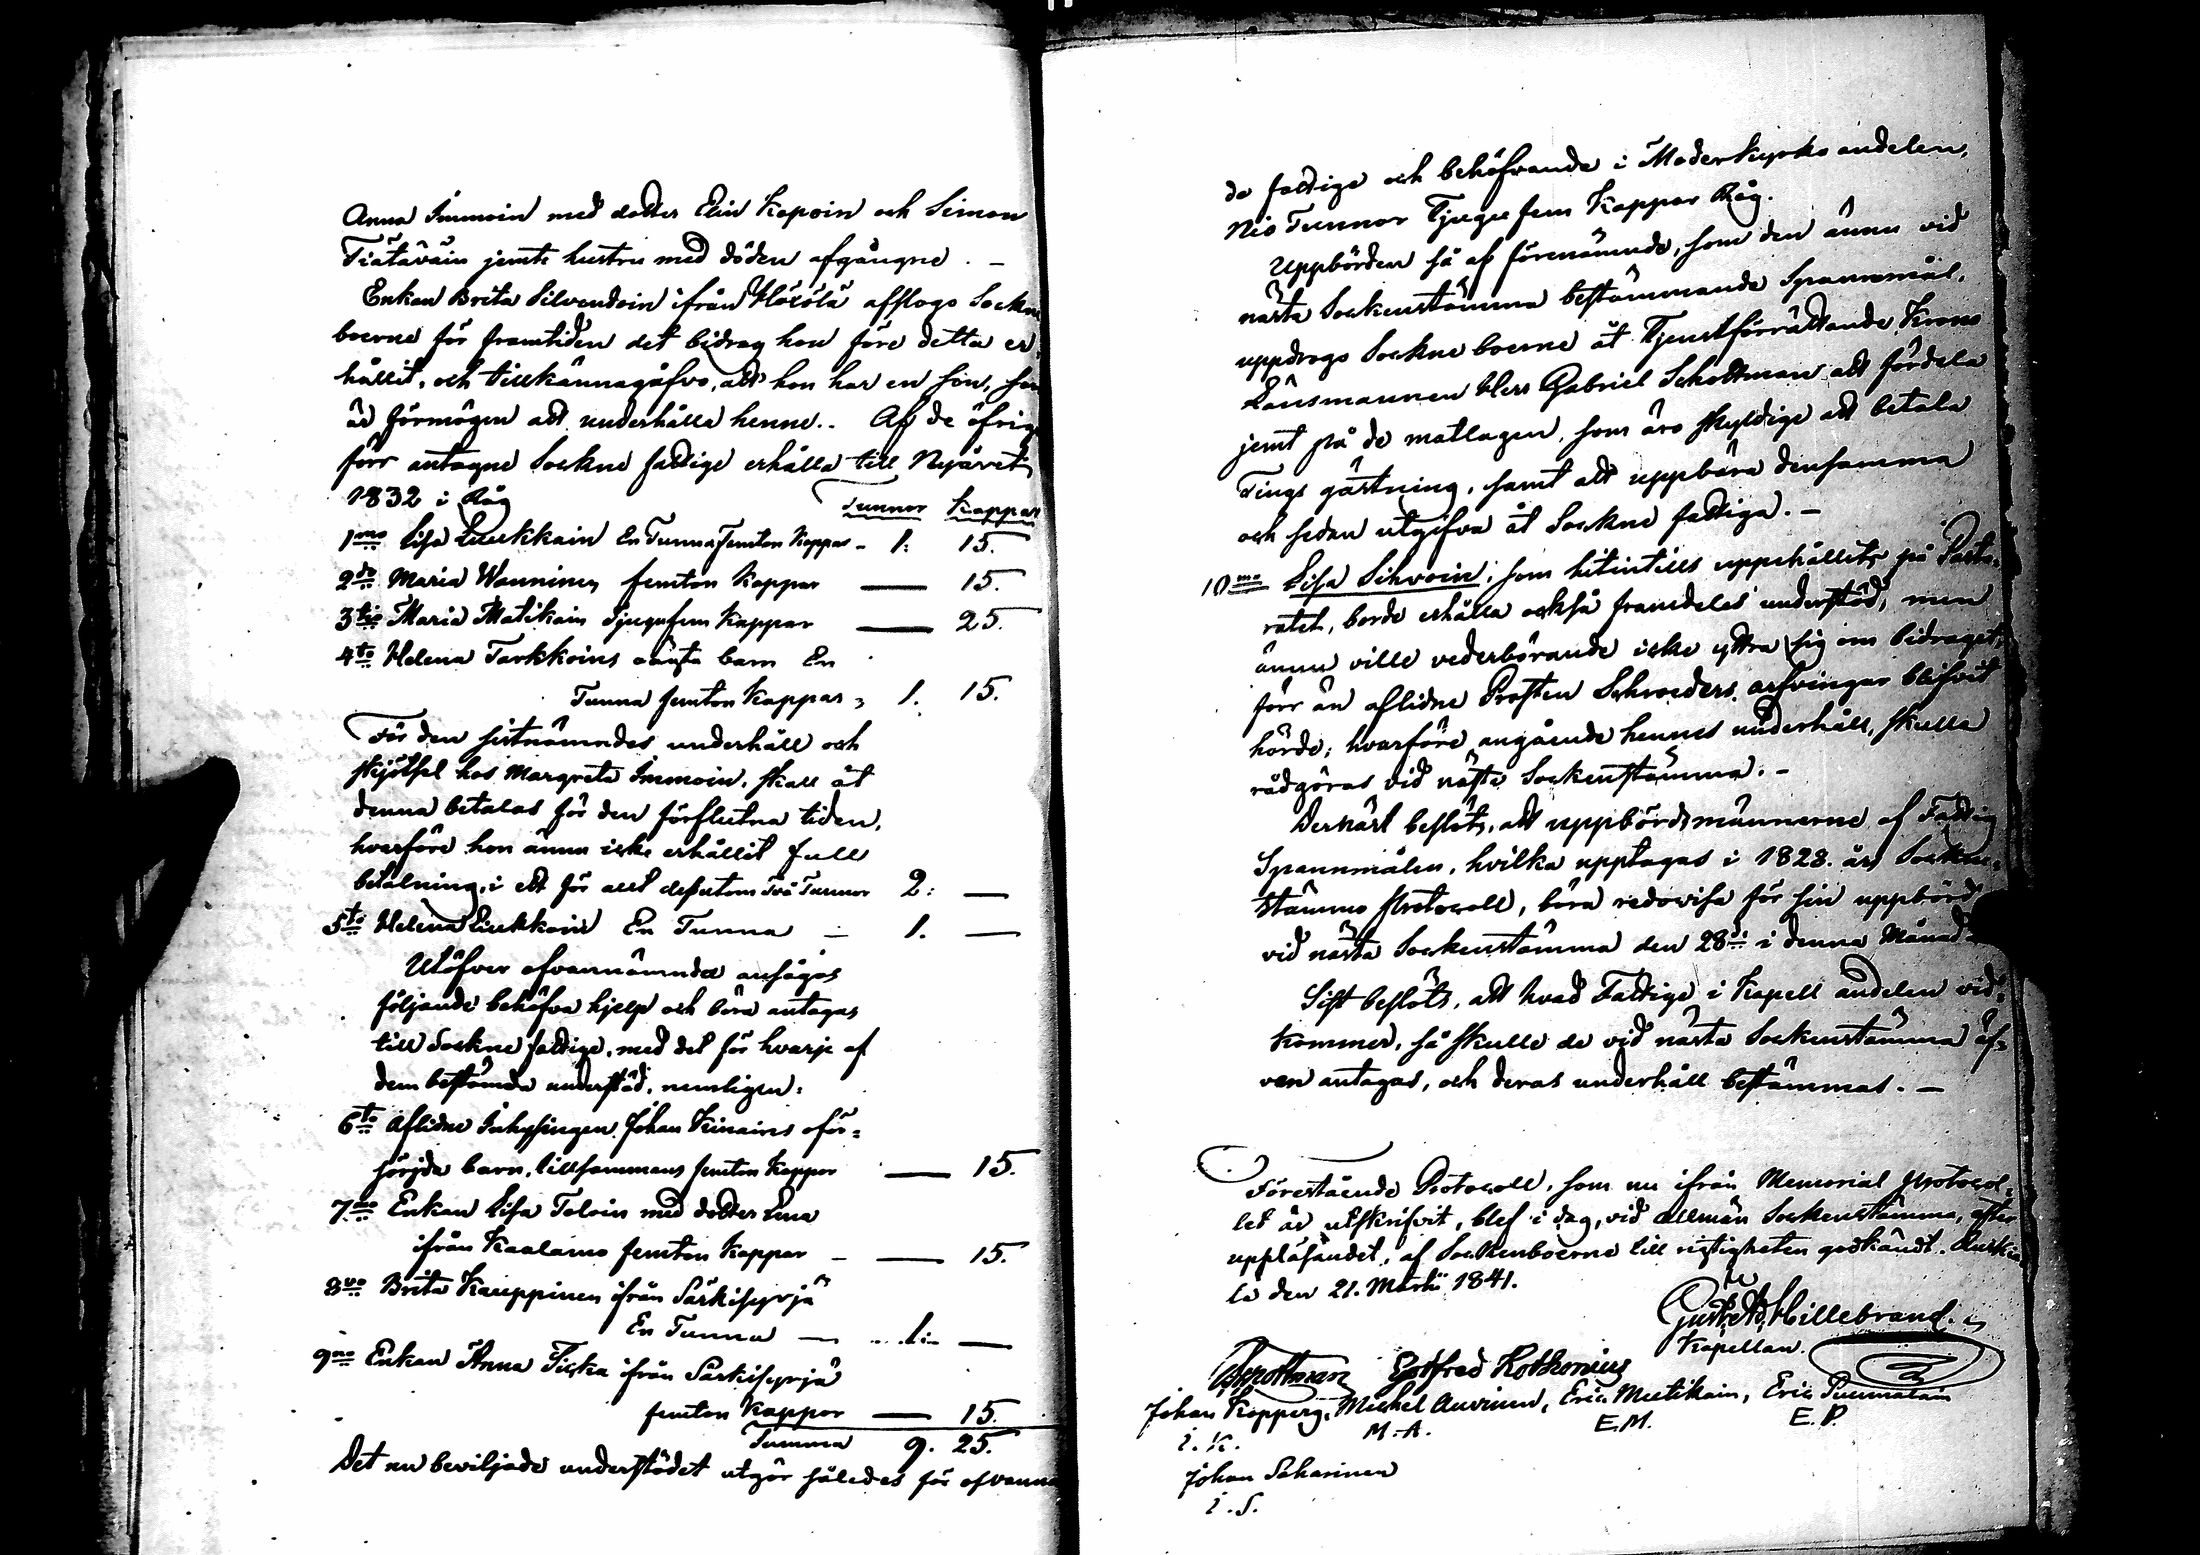 Anna Immoin med dotter Elin Kapoin och Simon
Tiätäväin jemte hustru med döden afgångne. –
Enkan Brita Silvendoin ifrån Höxölä afslogo Sockne
boerne för framtiden det bidrag hon före detta er-
hållit, och tillkännagåfvo, att hon har en son, som
är förmögen att underhålla henne.. Af de öfrige
förr antagne Sockne fattige erhålla till Nyåret
1832 i Råg
Tunnor Kappar
1mo Lisa Liukkain En Tunna Femton Kappar – 1: 15.
2do Maria Wanninen femton Kappar — 15.
3tio Maria Matikain Tjugufem Kappar — 25.
4to Helena Tarkkoins oäkta barn En
Tunna femton Kappar, 1. 15.
För den sistnämndes underhåll och
skjötsel hos Margreta Immoin, skall åt
denna betalas för den förflutna tiden,
hvarföre hon ännu icke erhållit full
betalning, i ett för allt dessutom Två Tunnor 2: —
5to Helena Liukkoin En Tunna – 1. —
Utöfver ofvannämnde ansågos
följande behöfva hjelp och böra antagas
till Sockne fattige, med det för hvarje af
dem bestämda understöd, nemligen:
6to Aflidne Inhysingen Johan Kinains oför=
sörjda barn, tillsammans femton Kappar — 15.
7mo Enkan Lisa Toloin med dotter Lena
ifrån Kaalamo femton Kappar – — 15.
8vo Brita Kauppinen ifrån Särkisyrjä
En Tunna — 1: —
9no Enkan Anna Ticka ifrån Särkisyrjä
femton Kappar — 15.
Summa 9. 25.
Det nu beviljade understödet utgör således för ofvann
de fattige och behöfvande i Moderkyrko andelen,
Nio Tunnor Tjugu fem Kappar Råg.
Uppbörden så af förenämnde, som den ännu vid
nästa Sockenstämma bestämmande Spannemål,
uppdrogo Sockne boerne åt Tjenstförrättande Krono
Länsmannen Herr Gabriel Schottman att fördela
jemt på de matlagen, som äro skyldige att betala
Tings gästning, samt att uppbära densamma
och sedan utgifva åt Sockne fattiga. –
10mo Lisa Sihvoin, som hitintills uppehållits på Pasto-
ratet, borde erhålla också framdeles understöd, men
ännu ville vederbörande icke yttra sig om bidraget,
förr än aflidne Prosten Schroeders arfvingar blifvit
hörde; hvarföre angående hennes underhåll, skulle
rådgöras vid nästa Sockenstämma. –
Dernäst beslöts, att uppbördsmännerne af Fattig
Spannmålen, hvilka upptagas i 1828. års Sockne-
stämmo Protocoll, böra redovisa för sin uppbörd
vid nästa Sockenstämma den 28de i denna Månad.
Sist beslöts, att hvad Fattige i Kapell andelen vid-
kommer, så skulle de vid nästa Sockenstämma äf=
ven antagas, och deras underhåll bestämmas. –
Förestående Protocoll, som nu ifrån Memorial Protocol-
let är utskrifvit, blef i dag, vid allmän Sockenstämma, efter
uppläsandet, af Sockenboerne till riktigheten godkändt. Ruskia
la den 21. Martii 1841.
Gust. Ad. Hillebrand.
Kapellan.
Gotfred Rothovius
Johan Kopperg, Michel Auvinen, Eric Mutikain, Eric Purmalain
I. K. M. A. E. M. E. P.
Johan Saharinen
I. S.